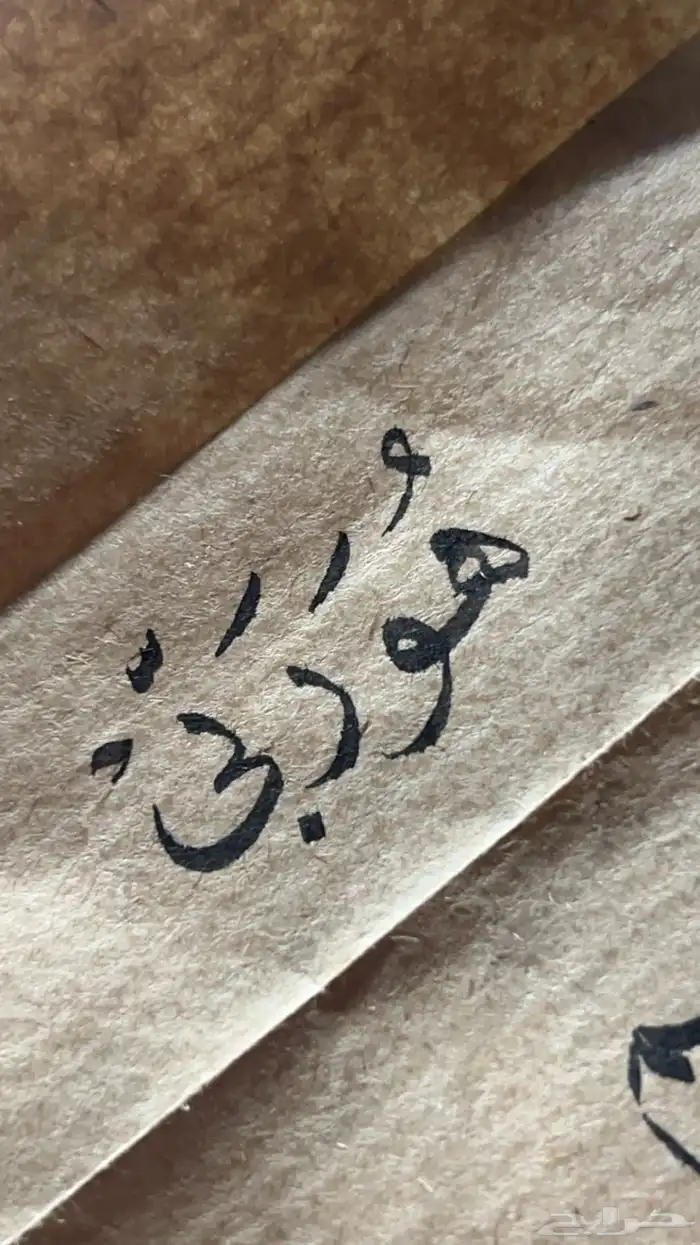 هُوَ رَبِّي
حراج